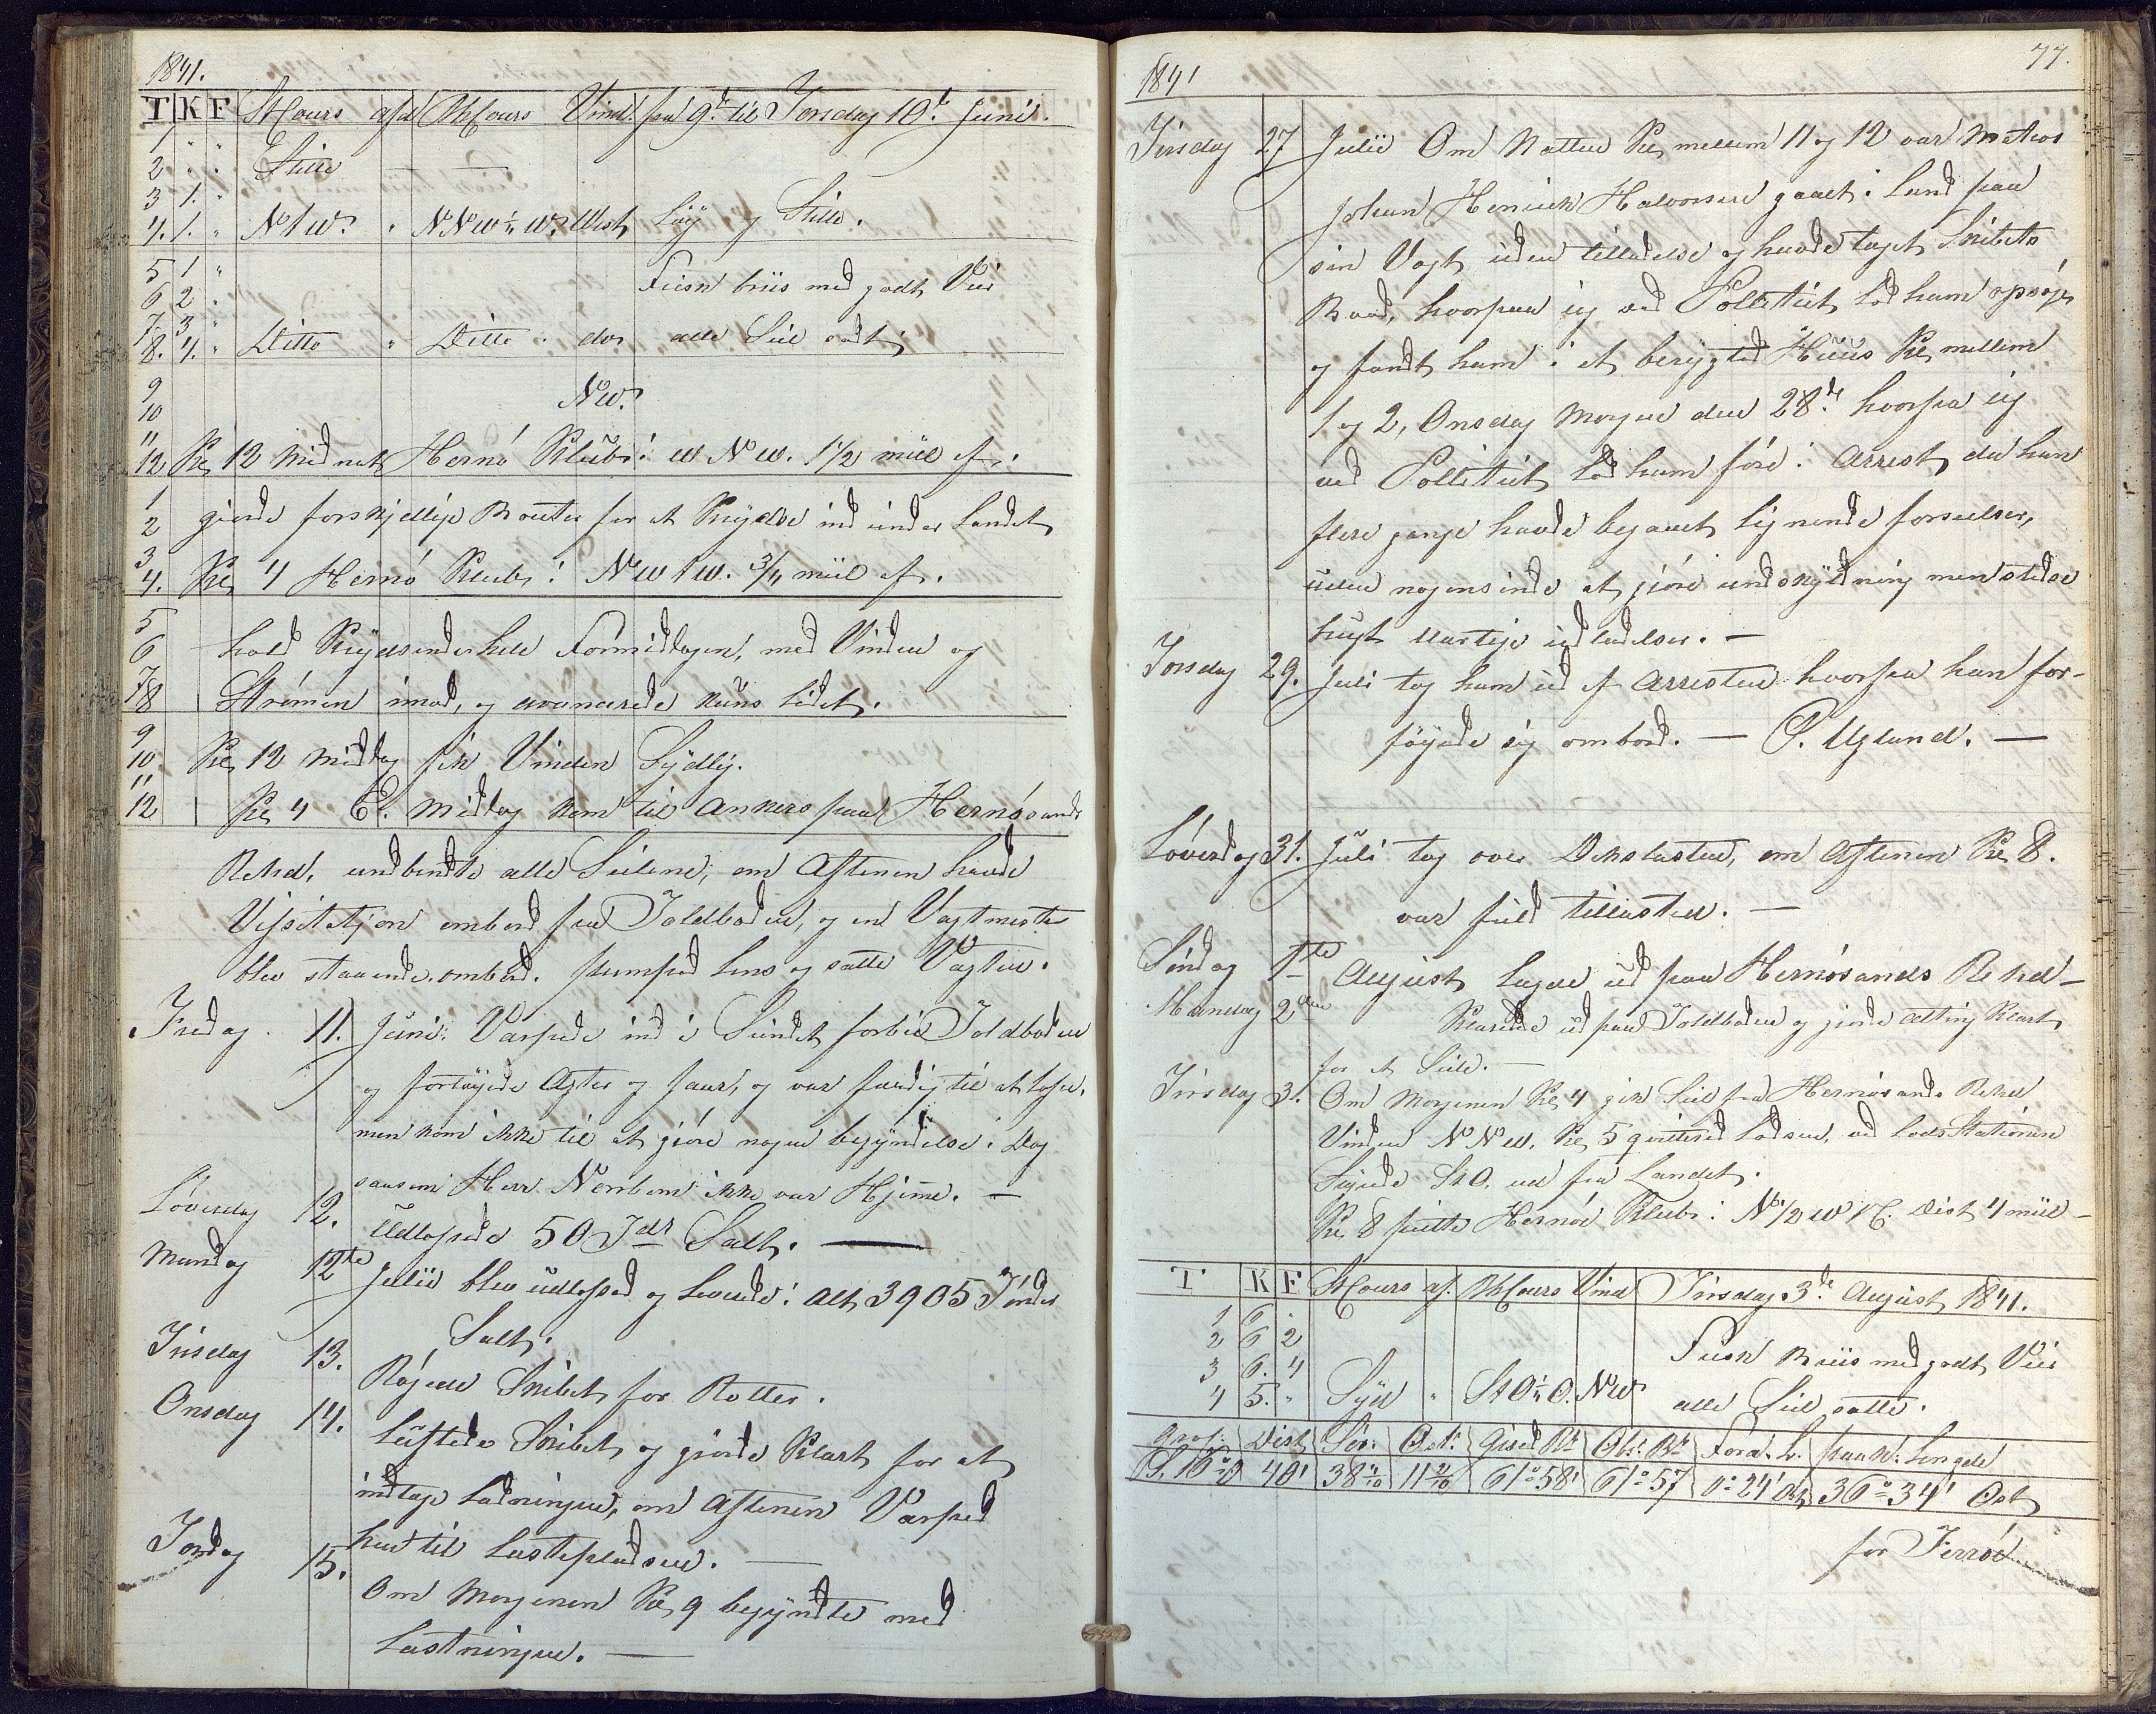 1841.
T K F St Cours afd B Cours Vind. fra 9de til Torsdag 10de Juni.
1 " "
2 " " Stille — —
3 1. "
4. 1. " N t W. " NNW ½ W. West Löy og Stille.
5 1 " Frisk briis med godt Veir
6 2 "
7 3 "
8. 4. " Ditto " Ditto " do alle Seil sat
9 NW.
10
11
12 Kl 12 Midnat Hernö Klubb i W NW. 1 1/2 miil af.
1
2 giorde forskjellige Bouter for at Krydse ind under Landet
3
4. Kl 4 Hernö Klubb i NW t W. 3/4 miil af.
5
6 hold Krydsende hele Formidagen, med Vinden og
7
8 Strömen imod, og avancerede kuns lidet.
9
10 Kl 12 Middag fik Vinden Sydlig.
11
12 Kl 4 E. Middag kom til Ankers paa Hernösands
Rehd, undbandt alle Seilene, om Aftenen havde
Visitatjon ombord fra Toldboden, og en Vagtmester
blev staaende ombord. pumped Lens og satte Vagten.
Fredag 11. Juni. Varpede ind i Sundet forbie Toldboden
og fortöyede Agter og faar, og var færdig til at losse.
men kom ikke til at giöre nogen begyndelse i Dag
saasom Herr Nenbom ikke var Hjeme. —
Löverdag 12. Udlossede 50 Tdr Salt. —
Mandag 12te Julii blev udlosset og Leverede i alt 3905 Tönder
Salt.
Tirsdag 13. Rögede Skibet for Rotter.
Onsdag 14. Luftede Skibet og giorde Klart for at
indtage Ladningen, om Aftenen Varped
hen til Lastepladsen. —
Tordag 15. Om Morgenen Kl 9 begyndte med
Lastningen. —
77.
1841
Tirsdag 27 Julii Om Natten Kl mellem 11 og 12 var Matros
Johan Henrich Halvorsen gaaet i Land fra
sin Vagt uden tilladelse og havde taget Skibets
Baad, hvorpaa ieg ved Pollitiet lod ham opsöge
og fandt ham i et berygted Huus Kl mellem
1 og 2, Onsdag Morgen den 28de hvorfra ieg
ved Pollitiet lod ham före i Arrest da han
flere gange havde begaaet lignende forseelser,
uden nogensinde at giöre undskyldning men stedse
brugt uartige udladelser. —
Torsdag 29. Juli tog ham ud af Arresten hvorpaa han for-
föyede sig ombord. — P. Ugland. —
Löverdag 31. Juli tog over Dekslasten, om Aftenen Kl 8.
var fuld tillasted. —
Söndag 1te August lagde ud paa Hernösands Rehd —
Mandag 2den Klarede ud paa Toldboden og giorde alting Klart
for at Seile. —
Tirsdag 3. Om Morgenen Kl 4 gik Seil fra Hernösands Rehd
Vinden NNW. Kl 5 qviterede Lodsen, ved Lods Stationen
Styrede StO. ud fra Landet.
Kl 8 peilte Hernöe Klubb i N 1/2 W t E. Dist 4 miil —
T K F St Cours af. B Cours Vind Tirsdag 3de August 1841.
1 6 "
2 6 2 Frisk Briis med godt Veir
3 6. 4
4 5. " Syd " StO ½ O. NW alle Seil satte.
Dist Sör. Ost. Gised Br Obs. Br. Forа. L. paa W. Lengde
S. 16° O 40' 38 4/10 11 2/10 61° 58' 61° 57 0° 24' Ost 36° 34' Ost
for Ferröe